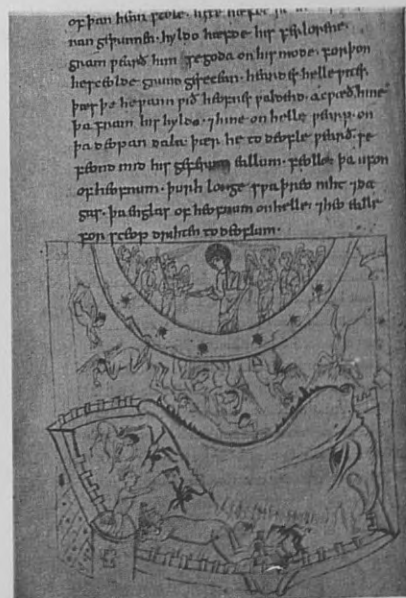 of þan hean stole. hete hæfde he æt his
ran gewunnen. hyldo hæfde his ferlorene.
gram wearð him se goda on his mode. forþon
he sceolde grund gesecean. heardes hellewites.
þæs þe he wann wið heofnes waldend. acwæð hine
þa fram his hyldo. ⁊ hine on helle wearp. on
þa deopan dala. þær he to deofle wearð. se
feond mid his geferum eallum. feollon þa ufon
of heofnum. þurh longe swa þreo niht ⁊ da
gas. þa englas of heofnum on helle. ⁊ heo ealle
for sceop drihten to deoflum.